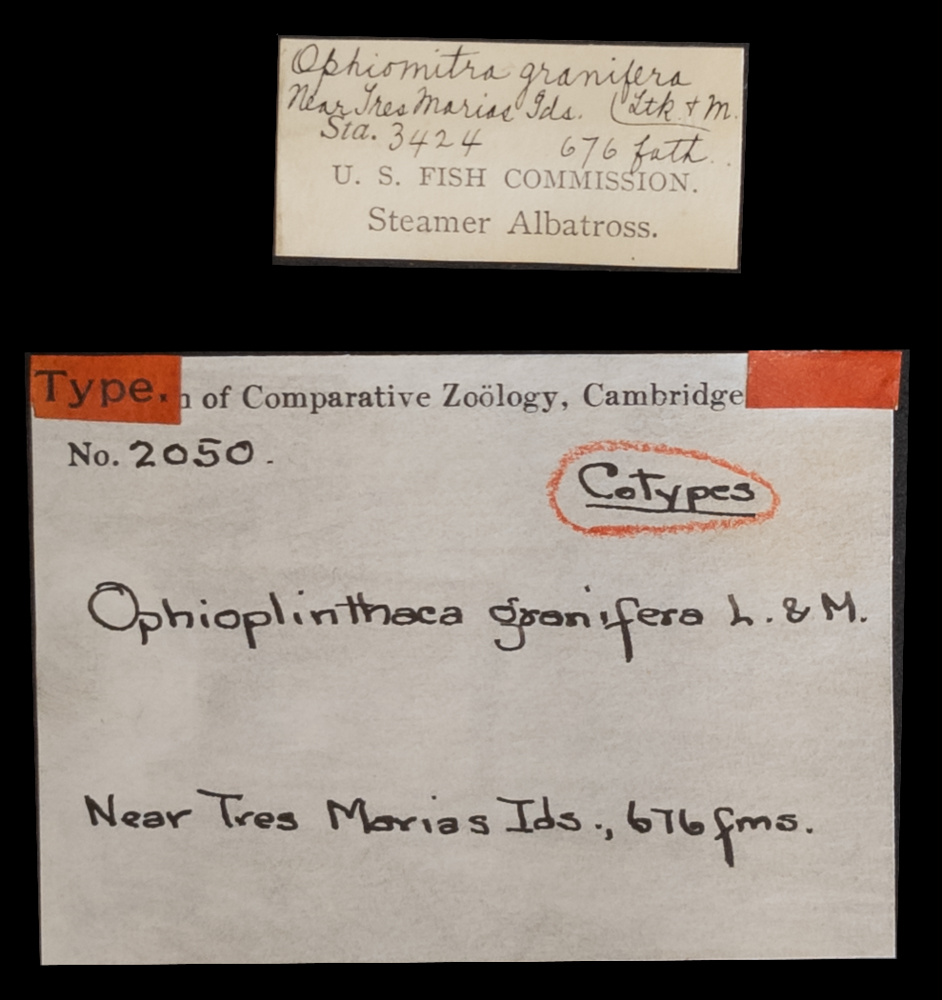 Ophiomitra granifera
Near Tres Marias Ids. (Ltk & M.
Sta. 3424 676 fath.
U. S. FISH COMMISSION.
Steamer Albatross.
Type. of Comparative Zoölogy, Cambridge
No. 2050.
Cotypes
Ophioplinthaca granifera L. & M.
Near Tres Marias Ids., 676 fms.